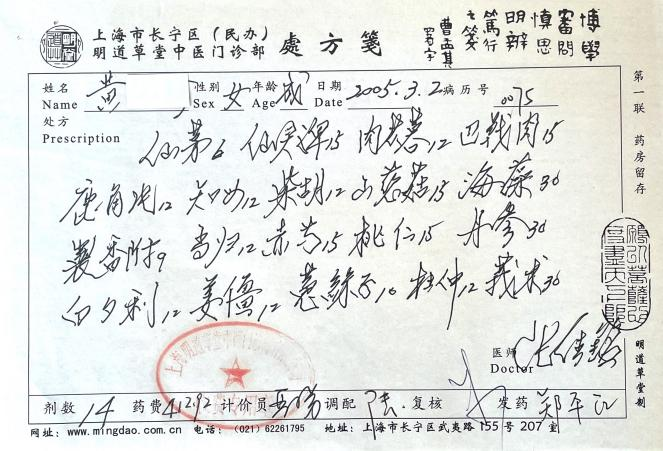 上海市长宁区(民办)
明道草堂中医门诊部
處方箋
博學
審問
慎思
明辨
篤行
之箋
姓名 Name 黄 性别 Sex 女 年龄 Age 成 日期 Date 2005.3.2 病历号 0075
处方
Prescription
仙茅6 仙灵脾15 肉苁蓉12 巴戟肉15
鹿角片12 知母12 柴胡12 山慈菇15 海藻30
製香附9 当归12 赤芍15 桃仁15 丹参30
白夕利12 姜蚕12 杜仲12 莪术30
医师
Doctor
第一联 药房留存
明道草堂制
剂数 14 药费 计价员 调配 陆 复核 发药
网址：www.mingdao.com.cn 电话：（021）62261795 地址：上海市长宁区武夷路155号207室